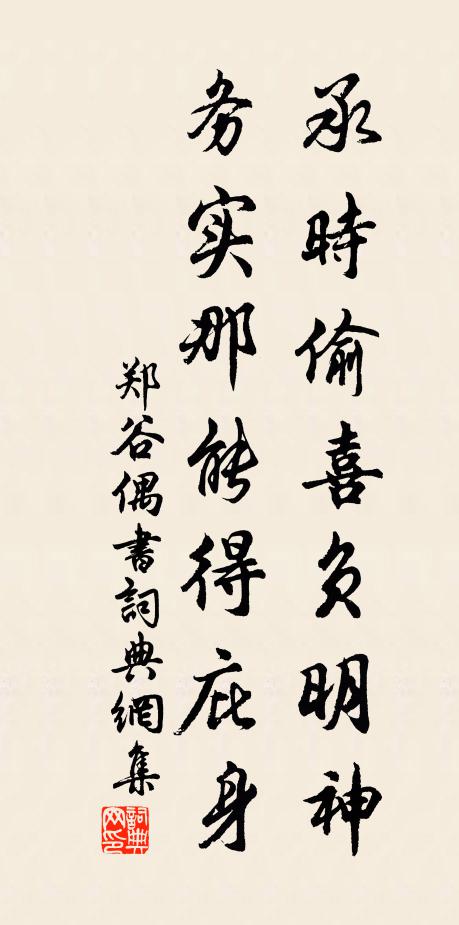 承時偷喜负明神
务实那能得庇身
郑谷偶書詞典網集
詞典網印